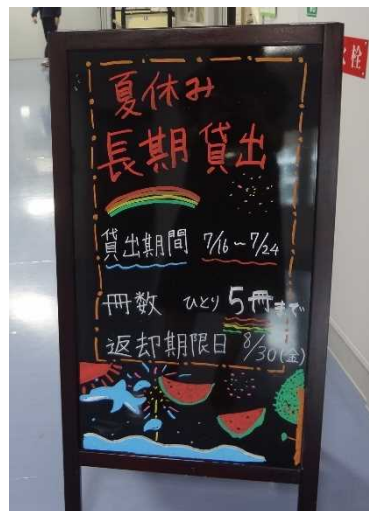 夏休み
長期貸出
貸出期間 7/16～7/24
冊数 ひとり5冊まで
返却期限日 8/30(金)
栓